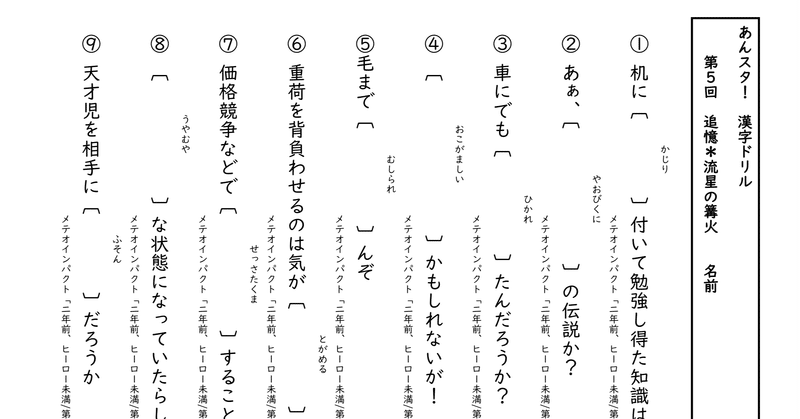 あんスタ！ 漢字ドリル
第５回 追憶＊流星の篝火 名前
① 机に〔 〕付いて勉強し得た知識は
かじり
メテオインパクト「二年前、ヒーロー未満/第
② あぁ、〔 〕の伝説か？
やおびくに
メテオインパクト「二年前、ヒーロー未満/第
③ 車にでも〔 〕たんだろうか？
ひかれ
メテオインパクト「二年前、ヒーロー未満/第
④〔 〕かもしれないが！
おこがましい
メテオインパクト「二年前、ヒーロー未満/第
⑤ 毛まで〔 〕んぞ
むしられ
メテオインパクト「二年前、ヒーロー未満/第
⑥ 重荷を背負わせるのは気が〔 〕
とがめる
メテオインパクト「二年前、ヒーロー未満/第
⑦ 価格競争などで〔 〕すること
せっさたくま
メテオインパクト「二年前、ヒーロー未満/第
⑧〔 〕な状態になっていたらし
うやむや
メテオインパクト「二年前、ヒーロー未満/第
⑨ 天才児を相手に〔 〕だろうか
ふそん
メテオインパクト「二年前、ヒーロー未満/第